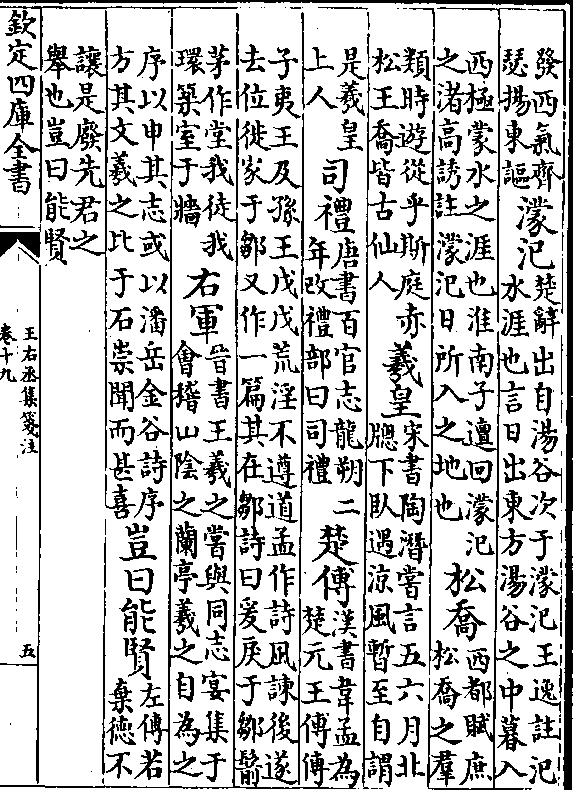 發西氣齊
瑟揚東謳
濛汜
楚辭出自湯谷次于濛汜王逸註汜
水涯也言日出東方湯谷之中暮入
西極蒙水之涯也淮南子邅回濛汜
之渚高誘註濛汜日所入之地也
松喬
西都賦庶
松喬之羣
類時遊從乎斯庭亦
松王喬皆古仙人
羲皇
宋書陶潛嘗言五六月北
牕下臥遇涼風暫至自謂
是羲皇
上人
司禮
唐書百官志龍朔二
年改禮部曰司禮
楚傅
漢書韋孟為
楚元王傅傅
子夷王及孫王戊戊荒淫不遵道孟作詩風諫後遂
去位徙家于鄒又作一篇其在鄒詩曰爰戾于鄒鬋
茅作堂我徒我
環築室于牆
右軍
晉書王羲之嘗與同志宴集于
會稽山陰之蘭亭羲之自為之
序以申其志或以潘岳金谷詩序
方其文羲之比于石崇聞而甚喜
豈曰能賢
左傳若
棄德不
讓是廢先君之
舉也豈曰能賢
欽定四庫全書
王右丞集箋注
卷十九
五